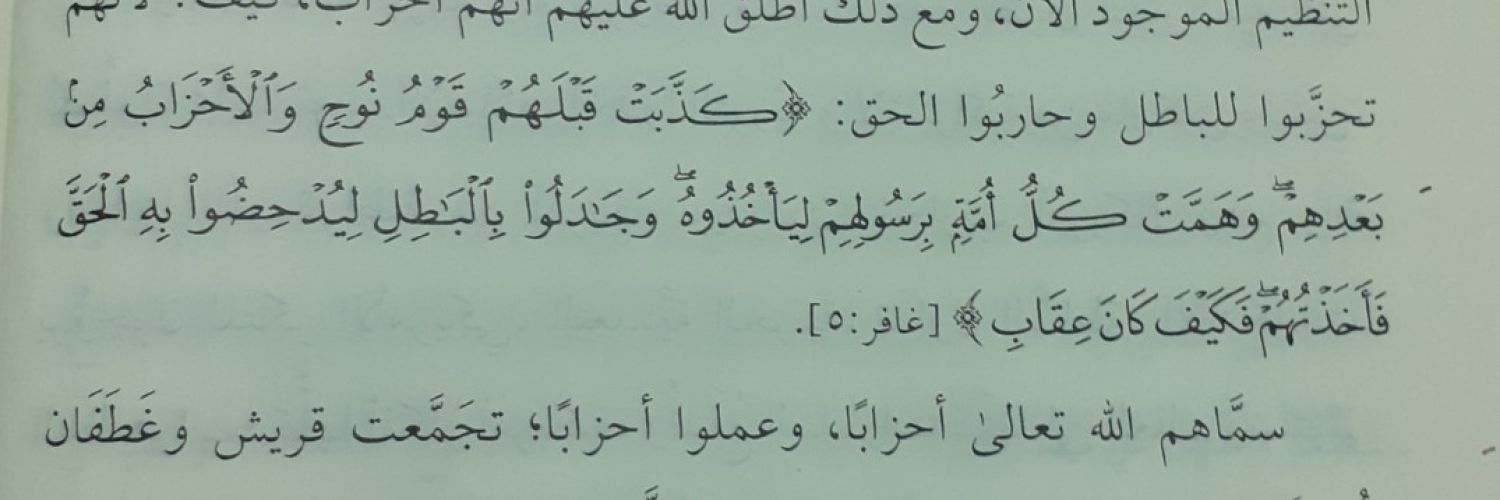 التنظيم الموجود الآن، ومع ذلك أطلق الله عليهم أنهم أحزاب، كيف؟ لأنهم
تحزَّبوا للباطل وحاربُوا الحق: ﴿كَذَّبَتْ قَبْلَهُمْ قَوْمُ نُوحٍ وَٱلْأَحْزَابُ مِنۢ
بَعْدِهِمْ ۖ وَهَمَّتْ كُلُّ أُمَّةٍۭ بِرَسُولِهِمْ لِيَأْخُذُوهُ ۖ وَجَـٰدَلُوا۟ بِٱلْبَـٰطِلِ لِيُدْحِضُوا۟ بِهِ ٱلْحَقَّ
فَأَخَذْتُهُمْ ۖ فَكَيْفَ كَانَ عِقَابِ﴾ [غافر:٥].
سمَّاهم الله تعالىٰ أحزابًا، وعملوا أحزابًا؛ تجَمَّعت قريش وغَطَفَان